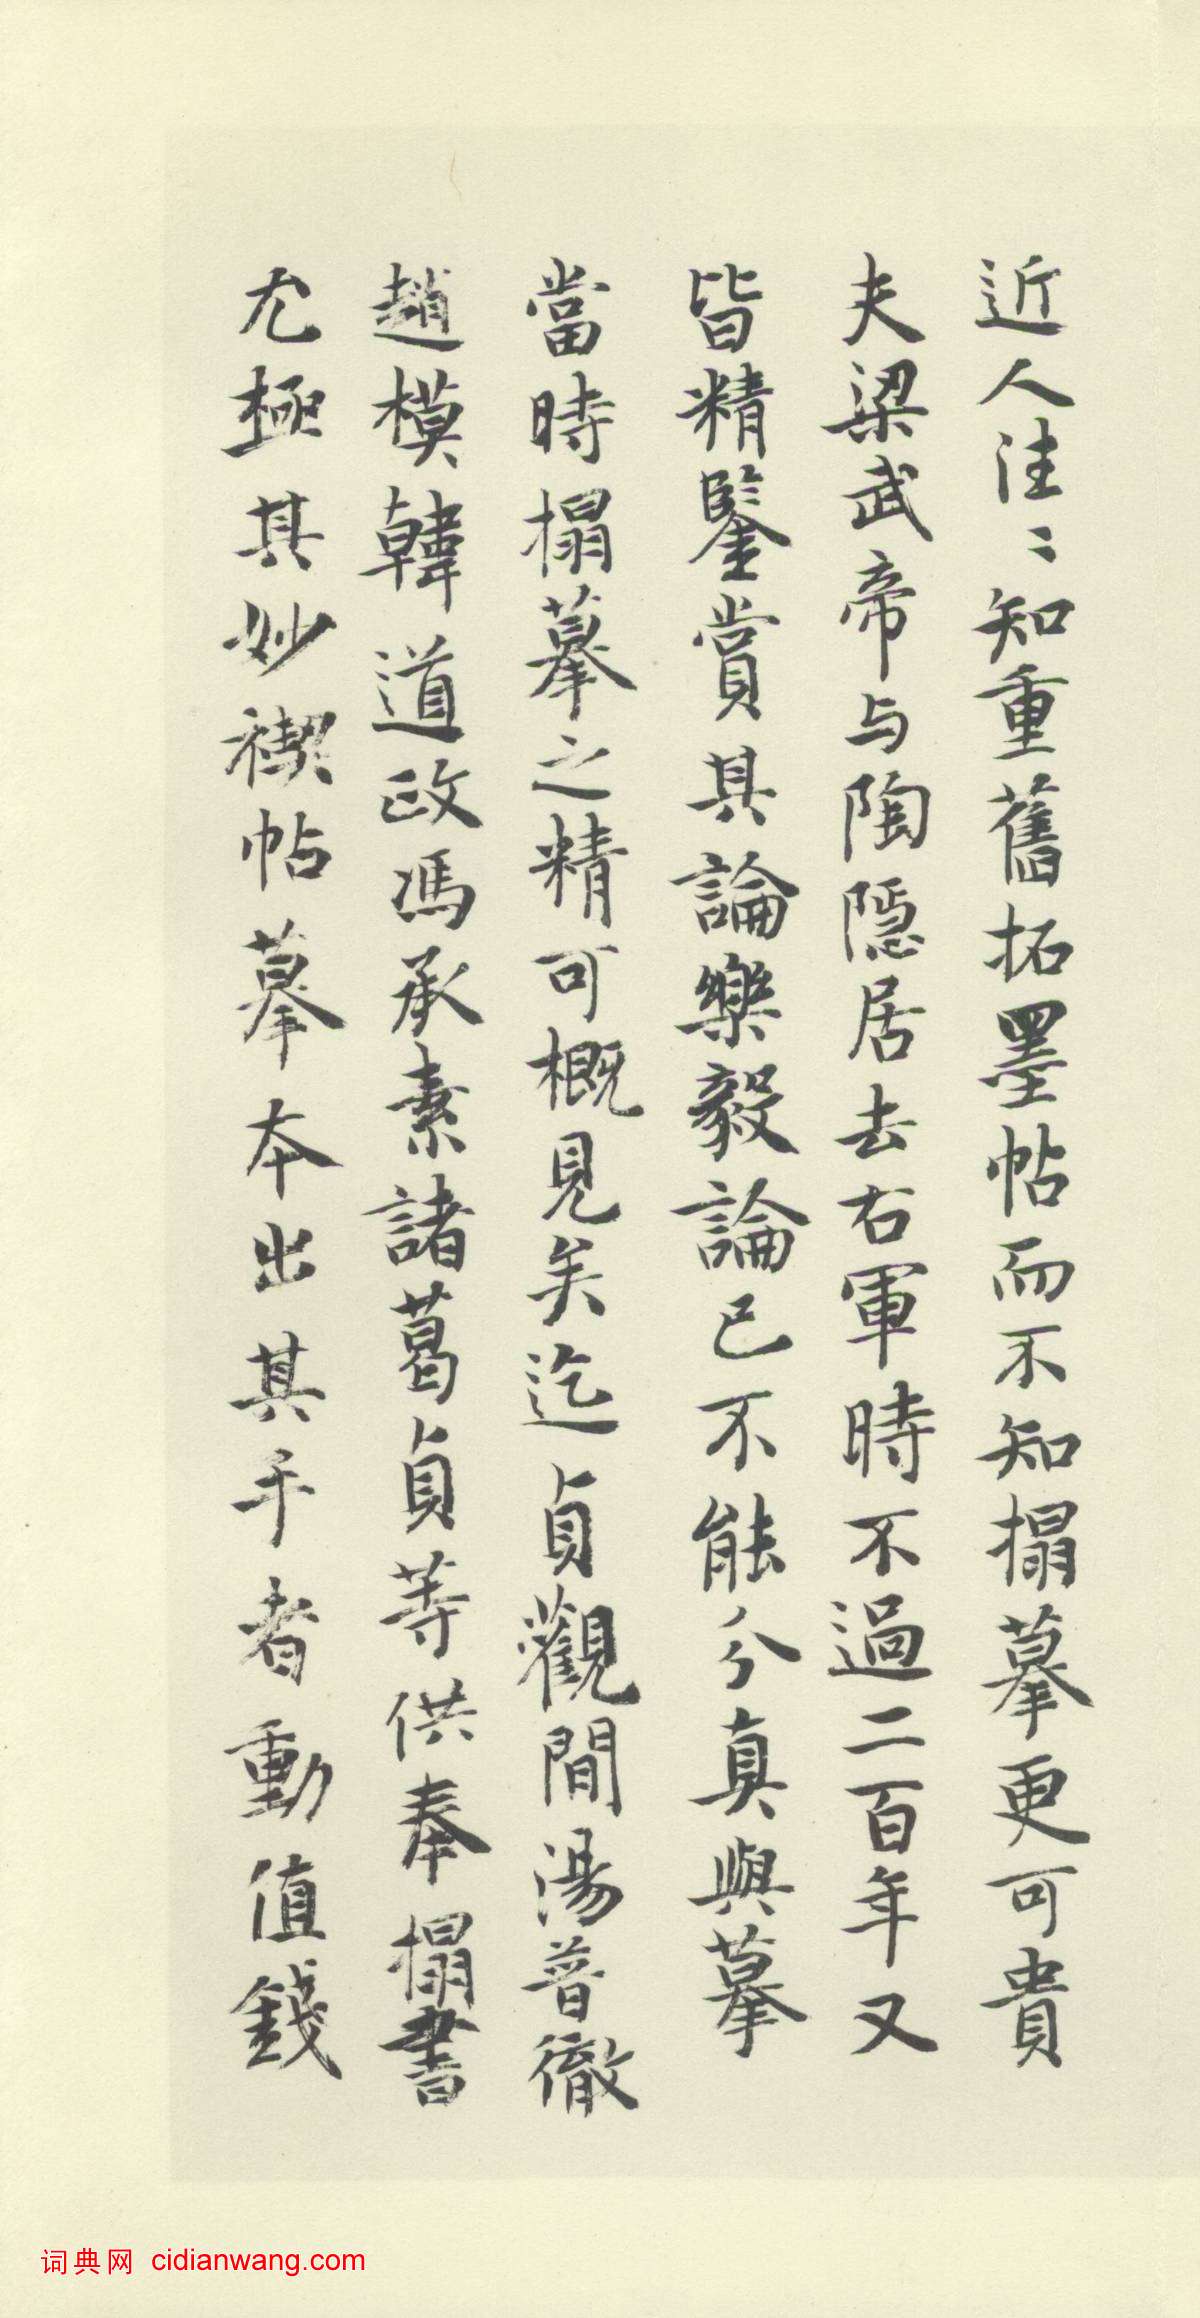 近人往〻知重舊拓墨帖而不知搨摹更可貴
夫梁武帝与陶隠居去右軍時不過二百年又
皆精鑒賞其論樂毅論已不能分真與摹
當時搨摹之精可概見矣迄貞觀間湯普徹
趙模韓道政馮承素諸葛貞等供奉搨書
尤極其妙禊帖摹本出其手者動值錢
词典网 cidianwang.com